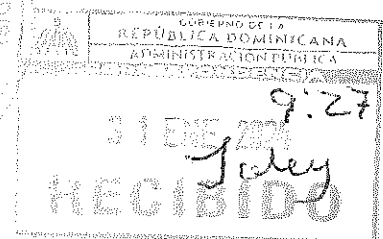 GOBIERNO DE LA
REPÚBLICA DOMINICANA
ADMINISTRACIÓN PÚBLICA
9:27
31 ENE 2024
RECIBIDO